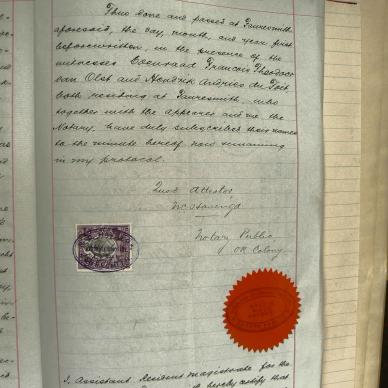 Thus done and passed at Fauresmith
aforesaid, the day, month, and year first
beforewritten, in the presence of the
witnesses Coenraad Francois Theodoor
van Olst and Hendrik Andries du Toit
both residing at Fauresmith, who
together with the appearer and me the
Notary, have duly subscribed their names
to the minute hereof now remaining
in my protocol.
Quod Attestor
Notary Public
OR Colony
I, Assistant Resident Magistrate for the
hereby certify that